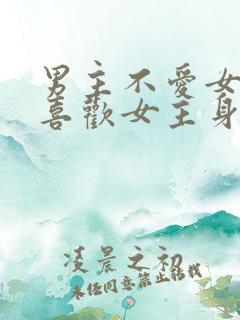 男主不愛女
喜歡女主身
凌晨之初
未经同意禁止转载